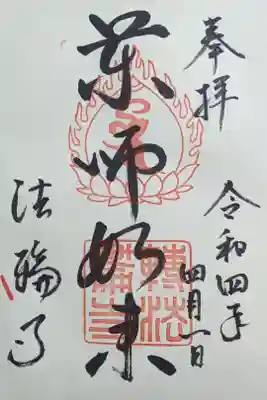 奉拝
令和四年
四月一日
薬師如来
法輪寺